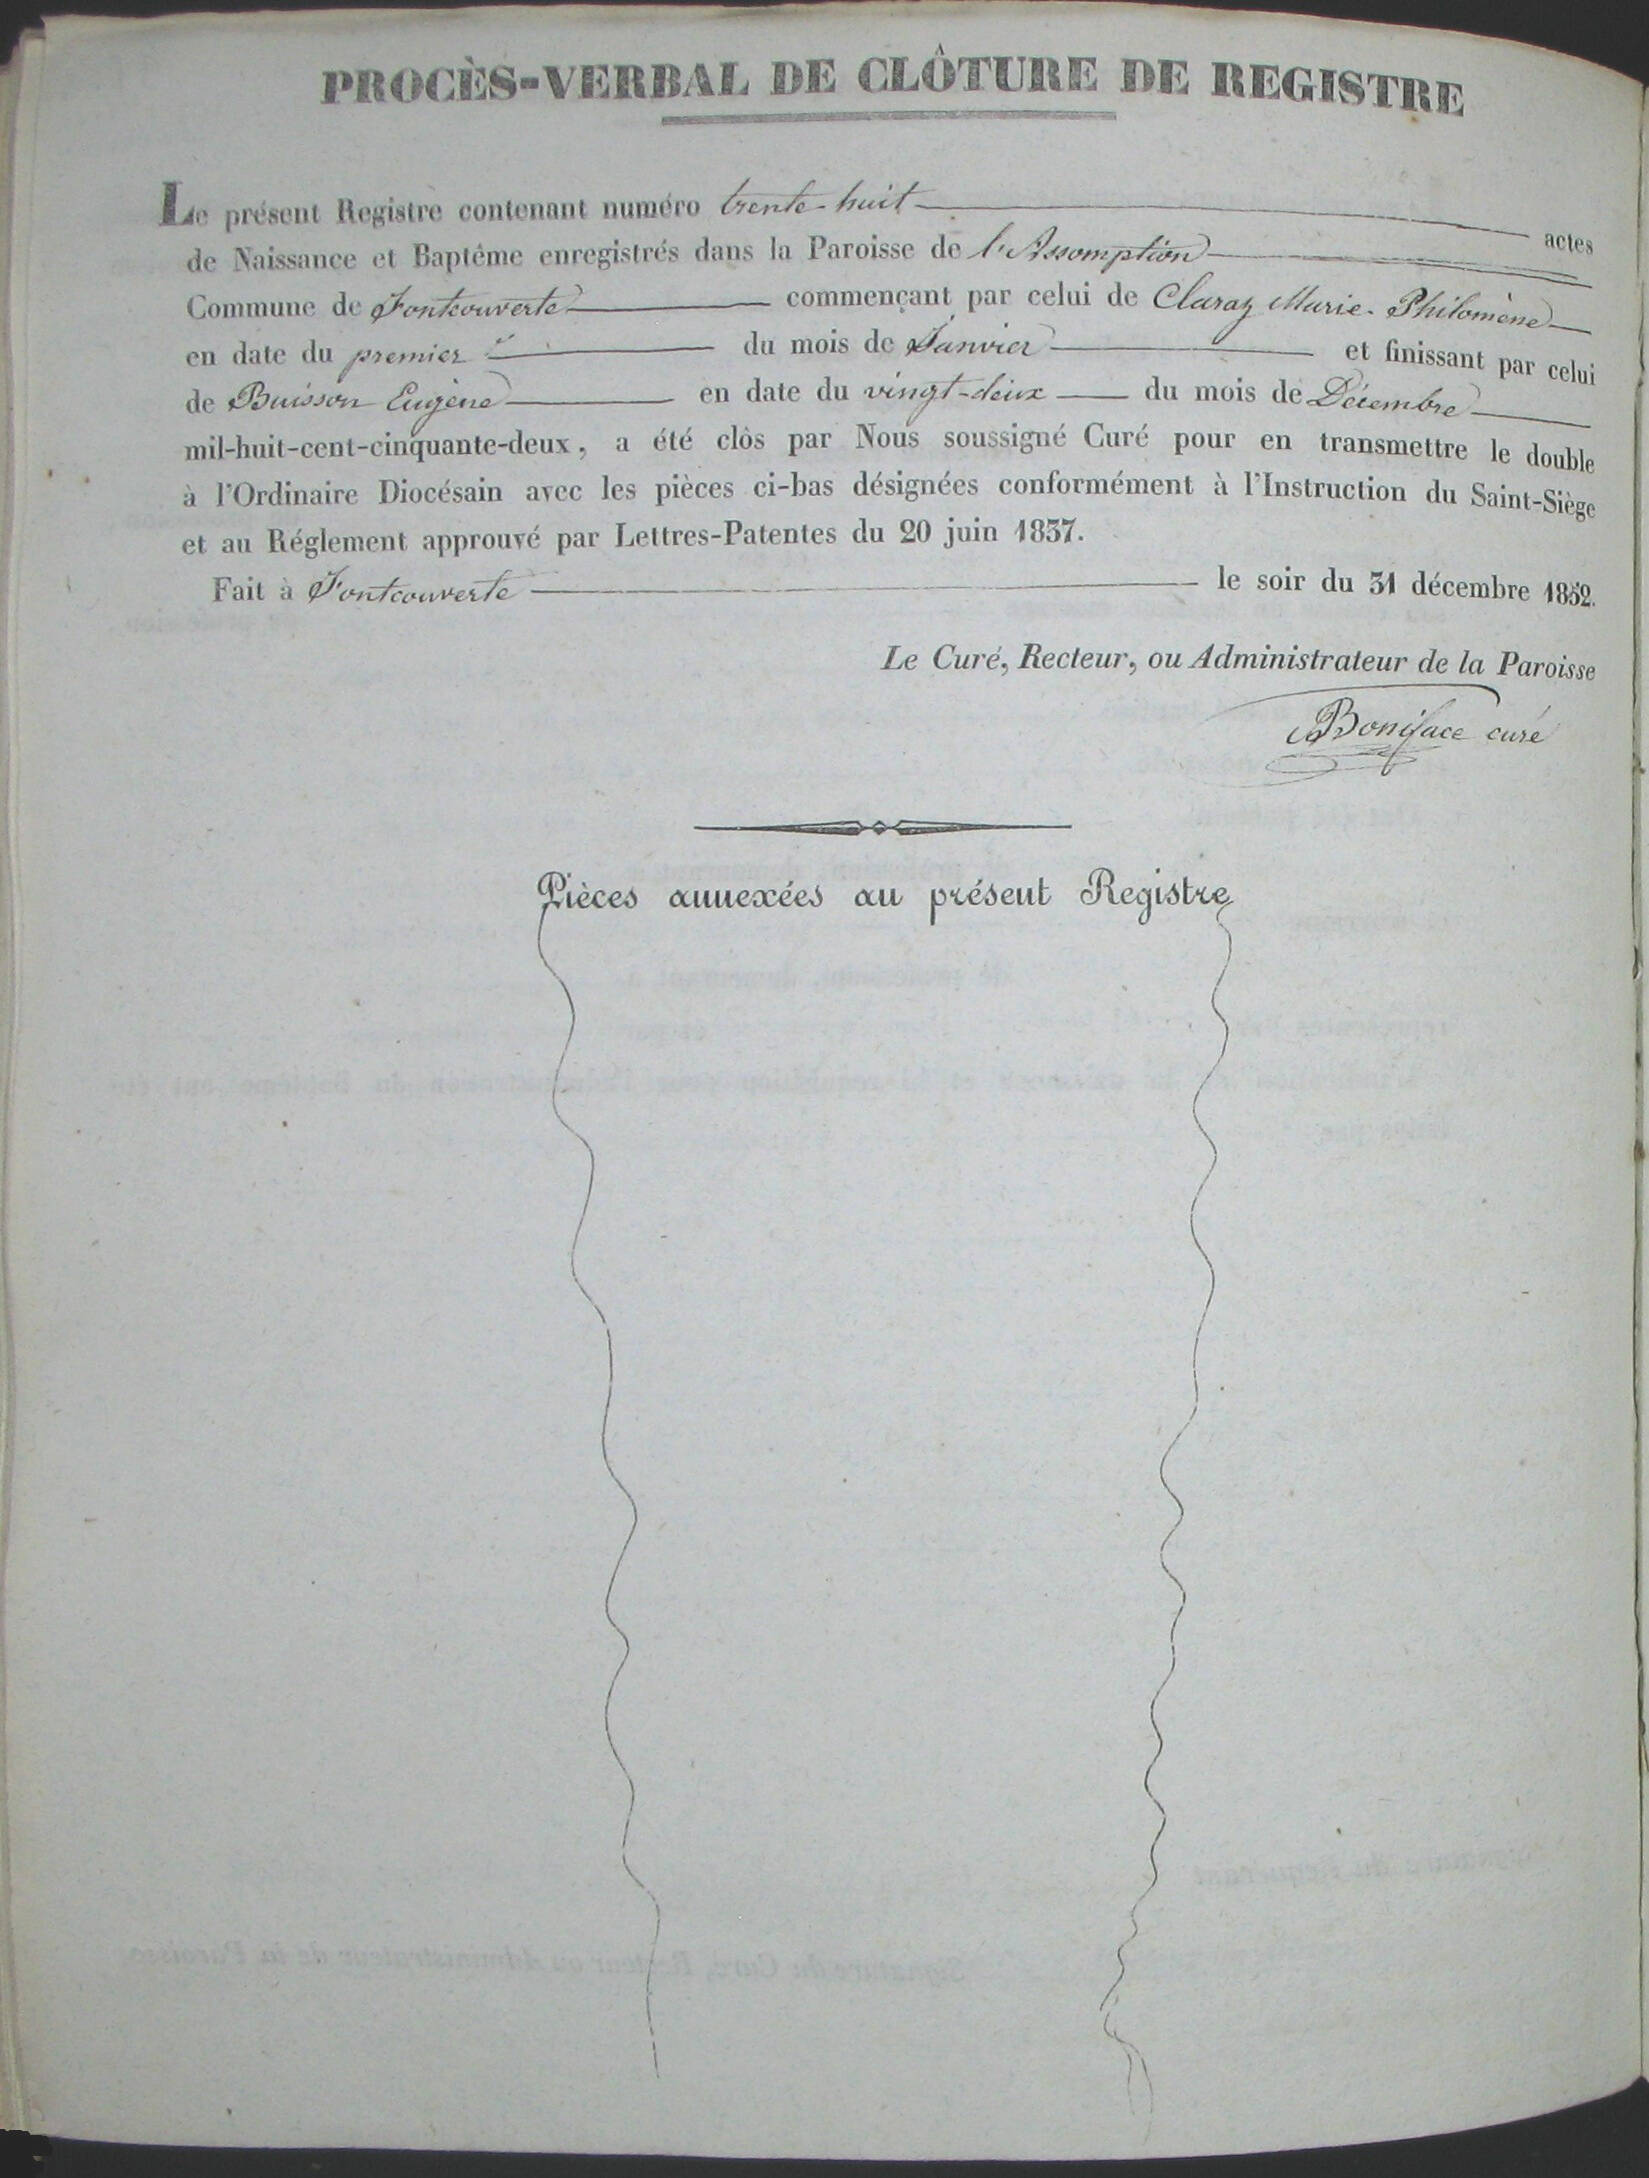 PROCÈS-VERBAL DE CLÔTURE DE REGISTRE
Le présent Registre contenant numéro trente-huit actes
de Naissance et Baptême enregistrés dans la Paroisse de l'Assomption
Commune de Fontcouverte commençant par celui de Claraz Marie-Philomène
en date du premier du mois de Janvier et finissant par celui
de Buisson Eugène en date du vingt-deux du mois de Décembre
mil-huit-cent-cinquante-deux, a été clòs par Nous soussigné Curé pour en transmettre le double
à l'Ordinaire Diocésain avec les pièces ci-bas désignées conformément à l'Instruction du Saint-Siège
et au Réglement approuvé par Lettres-Patentes du 20 juin 1837.
Fait à Fontcouverte le soir du 31 décembre 1852.
Le Curé, Recteur, ou Administrateur de la Paroisse
Boniface curé
Pièces annexées au présent Registre